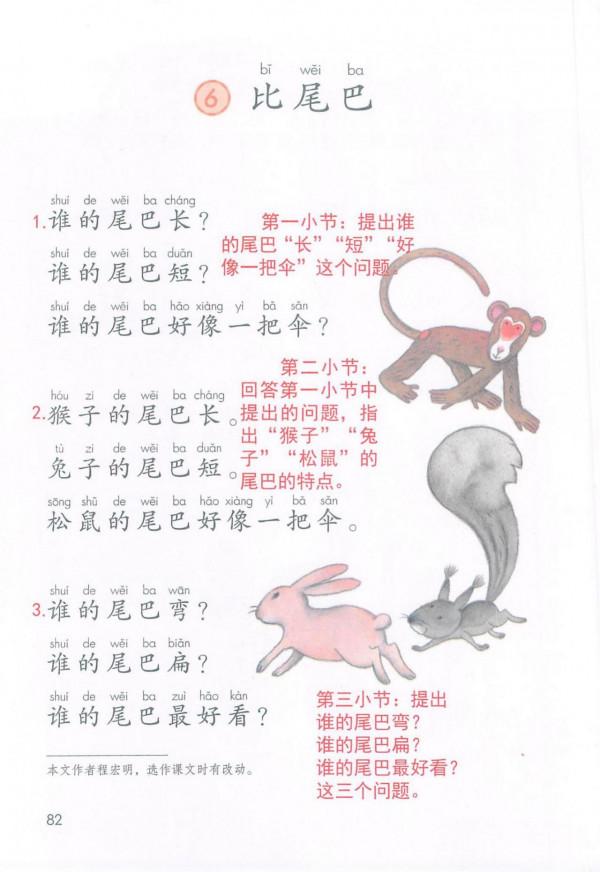 bǐ wěi ba
6 比尾巴
shuí de wěi ba cháng
1.谁的尾巴长？
shuí de wěi ba duǎn
谁的尾巴短？
shuí de wěi ba hǎo xiàng yì bǎ sǎn
谁的尾巴好像一把伞？
第一小节：提出谁
的尾巴“长”“短”“好
像一把伞”这个问题。
hóu zi de wěi ba cháng
2.猴子的尾巴长。
tù zi de wěi ba duǎn
兔子的尾巴短。
sōng shǔ de wěi ba hǎo xiàng yì bǎ sǎn
松鼠的尾巴好像一把伞。
第二小节：
回答第一小节中
提出的问题，指
出“猴子”“兔
子”“松鼠”的
尾巴的特点。
shuí de wěi ba wān
3.谁的尾巴弯？
shuí de wěi ba biǎn
谁的尾巴扁？
shuí de wěi ba zuì hǎo kàn
谁的尾巴最好看？
第三小节：提出
谁的尾巴弯？
谁的尾巴扁？
谁的尾巴最好看？
这三个问题。
本文作者程宏明，选作课文时有改动。
82